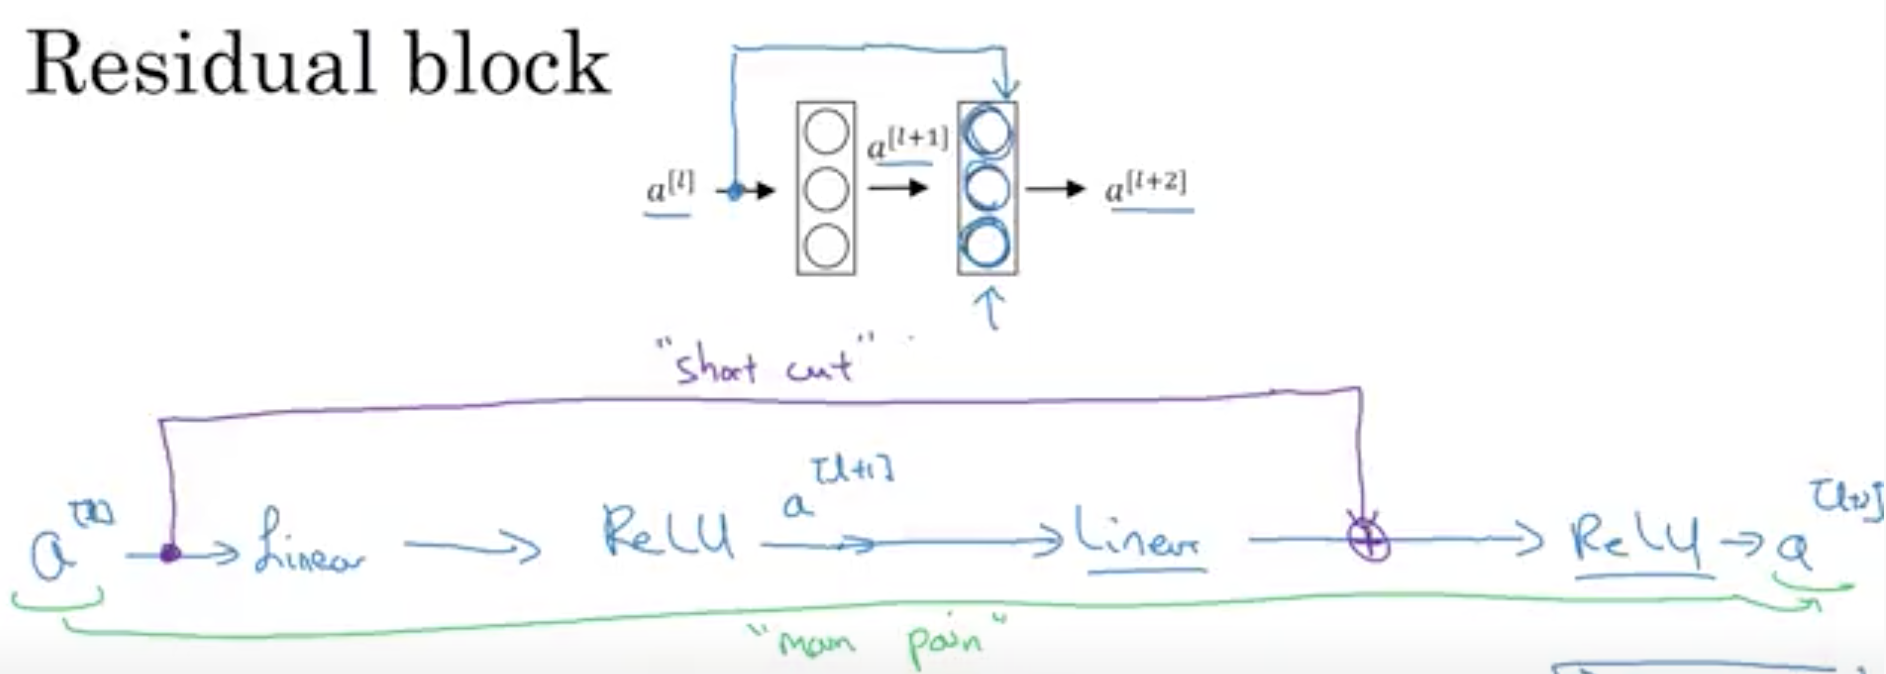 Residual block
a[l] a[l+1] a[l+2]
"short cut"
a[l] Linear ReLU a[l+1] Linear ReLU a[l+2]
"main path"